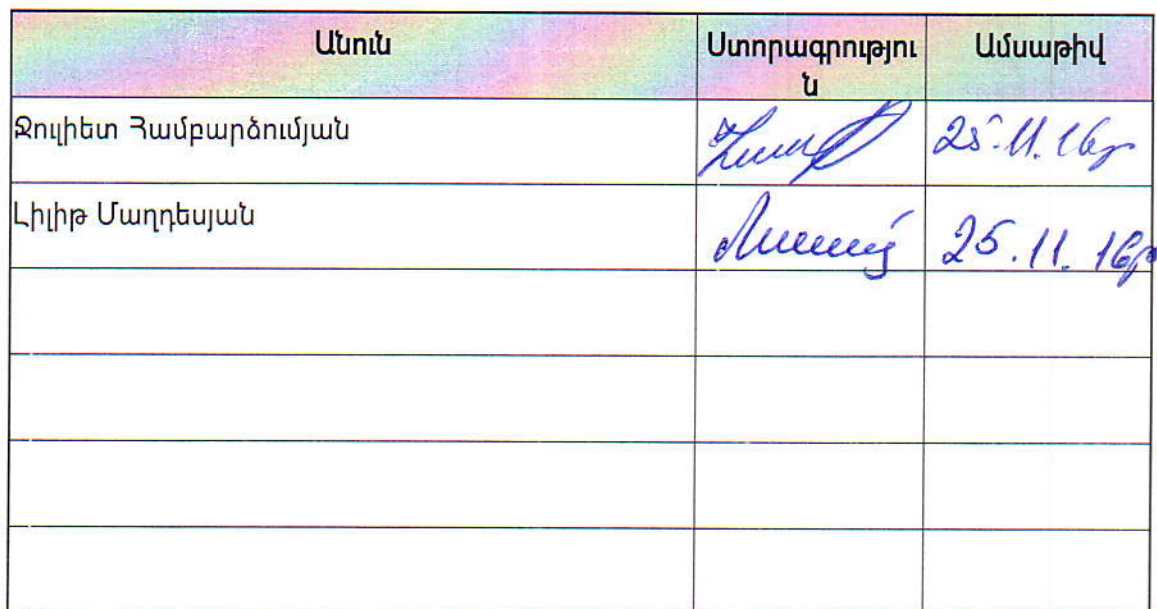 Անուն Ստորագրությու Ամսաթիվ
ն
Ջուլիետ Համբարձումյան 25.11.16թ
Լիլիթ Մաղդեսյան 25.11.16թ